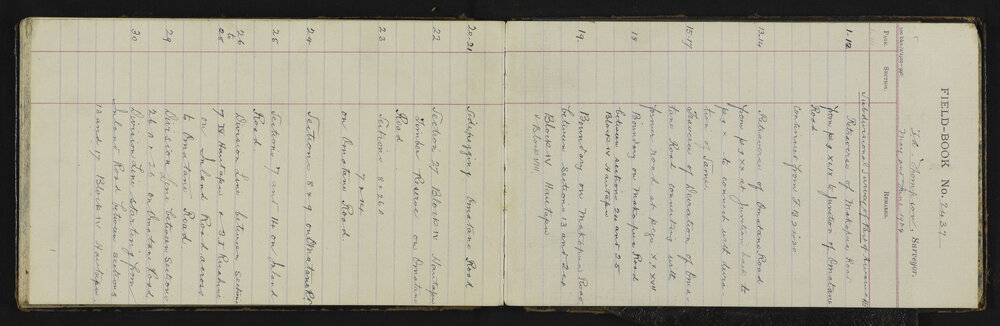 FIELD-BOOK No. 2437
Ed. Thompson, Surveyor.
May and June 1904
PAGE. SECTION. REMARKS.
Subdivisional Survey of Part of
1-12 Retraverse of Makapua Road
from pg xxix to Junction of Omatane
Road
Continued from F.B 2120
13.14 Retraverse of Omatane Road
from pg xx at Junction back to
pg x to connect with
tion of Same
15.17 Traverse of Deviation of Oma
tane Road connecting with
former road at page xxxvii
18 Boundary on Makapua Road
between section 24 and 25
Block IV Hautapu
19. Boundary on Makapua Road
between Section 13 and 24
Block IV Hautapu
& Block VIII
20.21 Sidepegging Omatane Road
22 Section 27 Block IV Hautapu
Timber Reserve on Omatane
Road
23 Sections 8 & 26A
7 & 14
on Omatane Road.
24 Sections 8 & 9 on Omatane Rd.
25 Sections 7 and 14 on Inland
Road
26 to 28 Division Line between Section
7 IV Hautapu &
on Inland Road across
to Omatane Road
29 Division Line between Sections
26A & 26 on Omatane Road.
30 Division Line starting from
Inland Road between sections
13 and 17 Block IV Hautapu